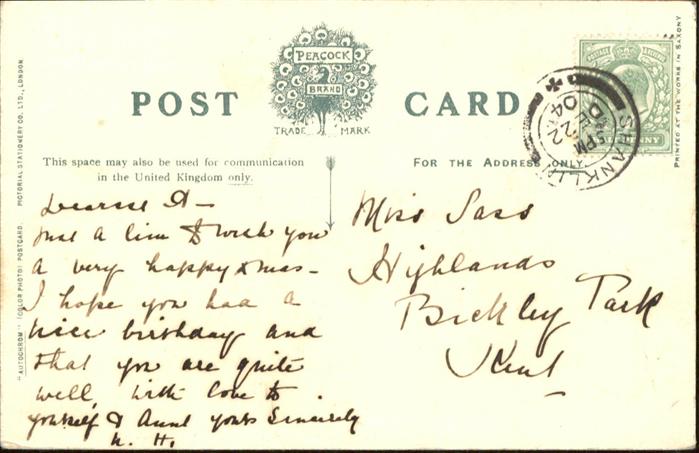 POST CARD
PEACOCK
BRAND
TRADE MARK
This space may also be used for communication
in the United Kingdom only.
FOR THE ADDRESS ONLY.
"AUTOCHROM" (COLOR PHOTO) POSTCARD. PICTORIAL STATIONERY CO. LTD., LONDON.
PRINTED AT THE WORKS IN SAXONY
SHANKLIN
PM
DE 22
04
Dearest A—
Just a line to wish you
a very happy Xmas—
I hope you had a
nice birthday and
that you are quite
well, with love to
yourself & Aunt yours Sincerely
N. H.
Miss Sass
Highlands
Bickley Park
Kent